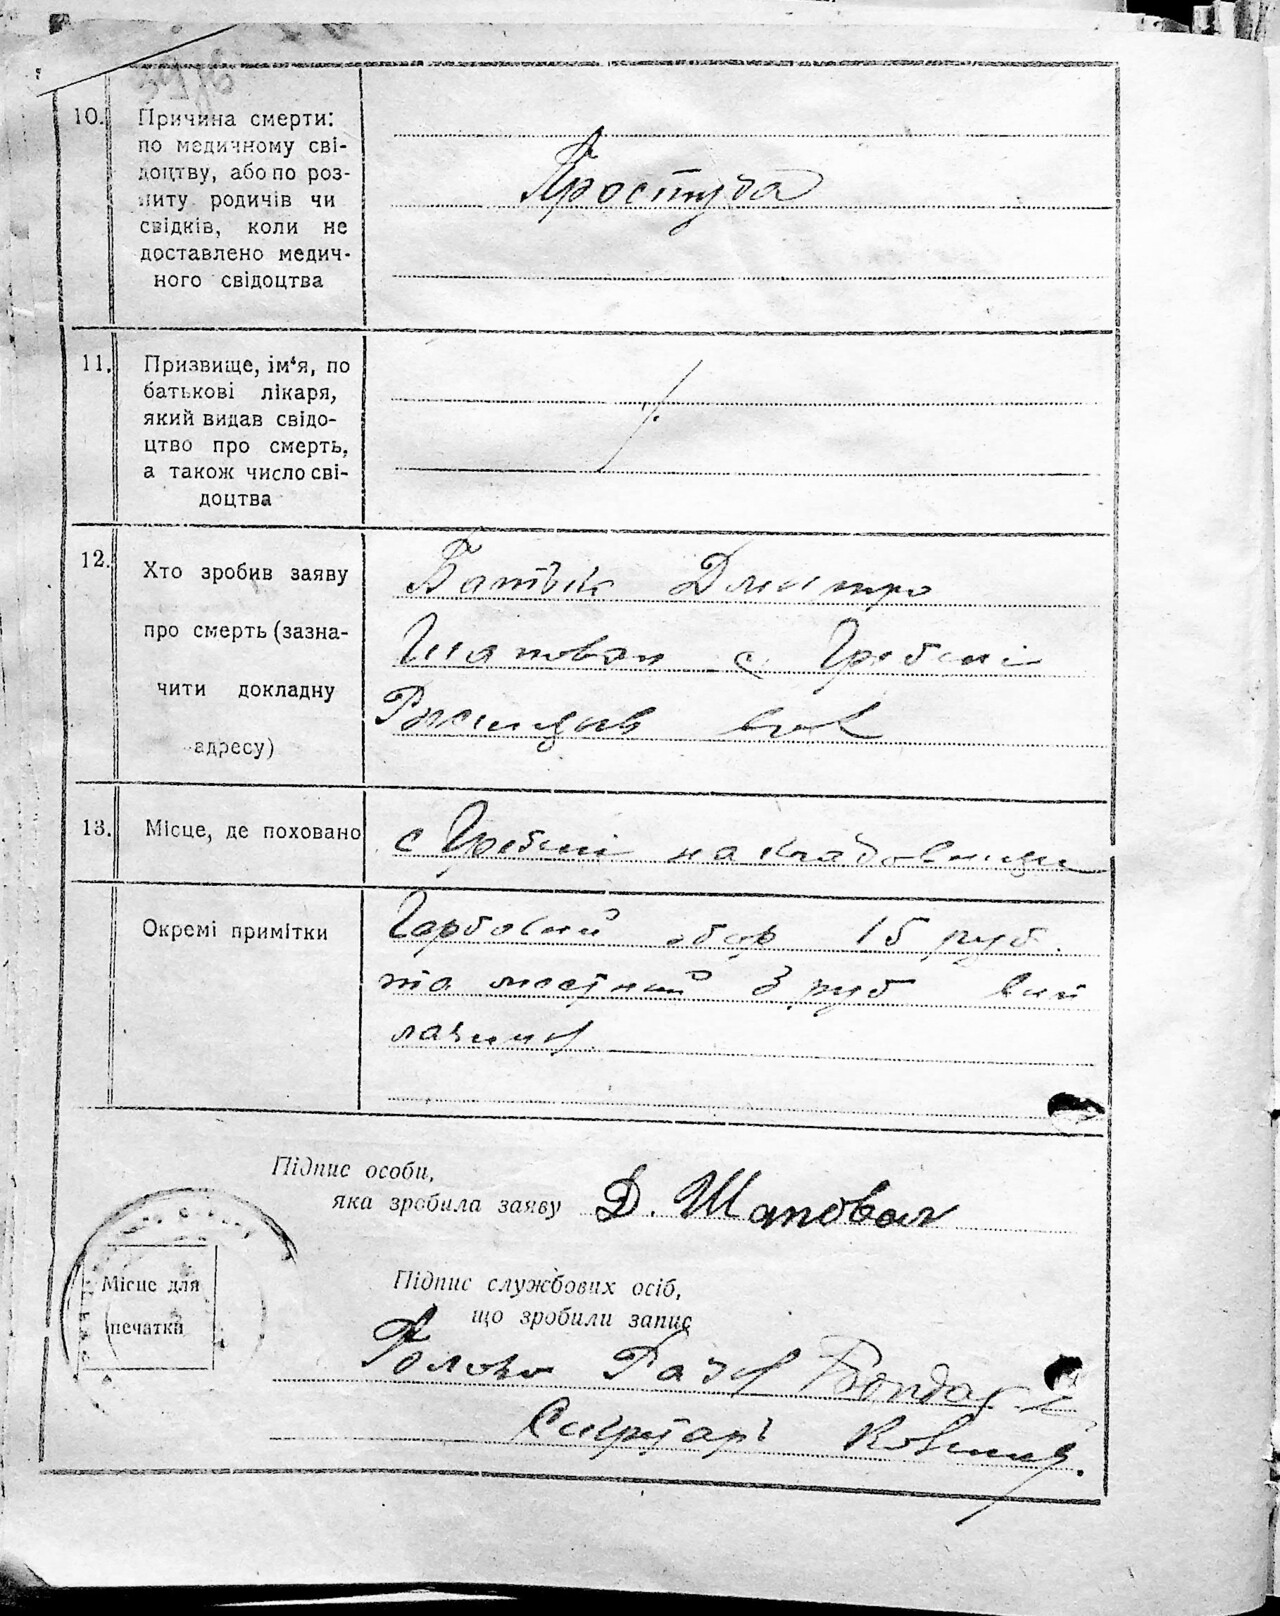 10.
Причина смерти:
по медичному сві-
доцтву, або по роз-
питу родичів чи
свідків, коли не
доставлено медич-
ного свідоцтва
Простуда
11.
Призвище, ім'я, по
батькові лікаря,
який видав свідо-
цтво про смерть,
а також число сві-
доцтва
12.
Хто зробив заяву
про смерть (зазна-
чити докладну
адресу)
Батько Дмитро
Шаповал с. Гребені
13.
Місце, де поховано
с Гребені на кладовищи
Окремі примітки
Гербовий збор 15 руб.
та местний 3 руб
Підпис особи,
яка зробила заяву Д. Шаповал
Місце для
печатки
Підпис службових осіб,
що зробили запис
Голова
Секретарь